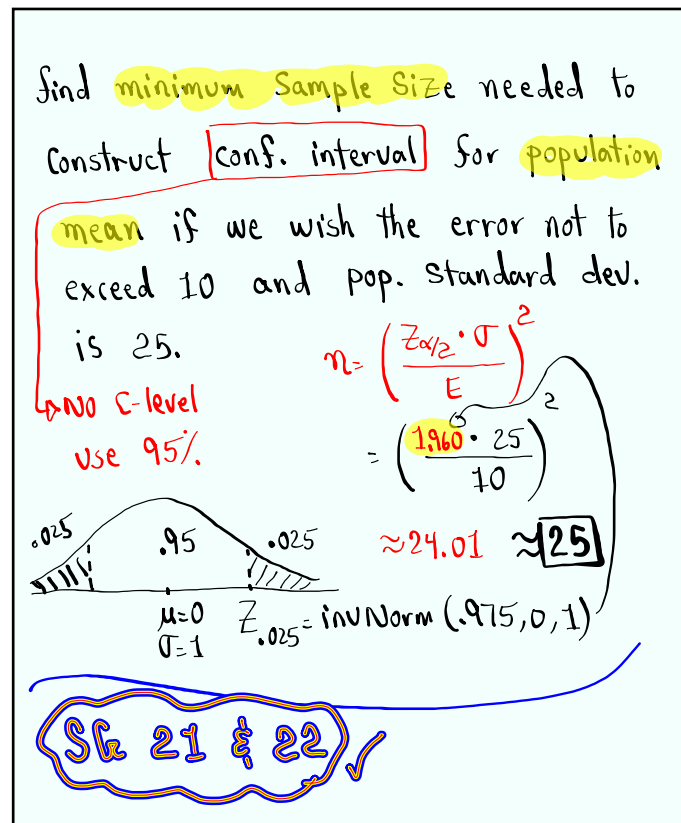 find minimum Sample Size needed to
Construct conf. interval for population
mean if we wish the error not to
exceed 10 and pop. Standard dev.
is 25.
n= (Zα/2 · σ / E)²
No C-level
use 95%.
= (1.960 · 25 / 10)²
.025 .95 .025
≈24.01 ≈25
μ=0
σ=1
Z.025 = invNorm (.975,0,1)
SG 21 & 22 ✓